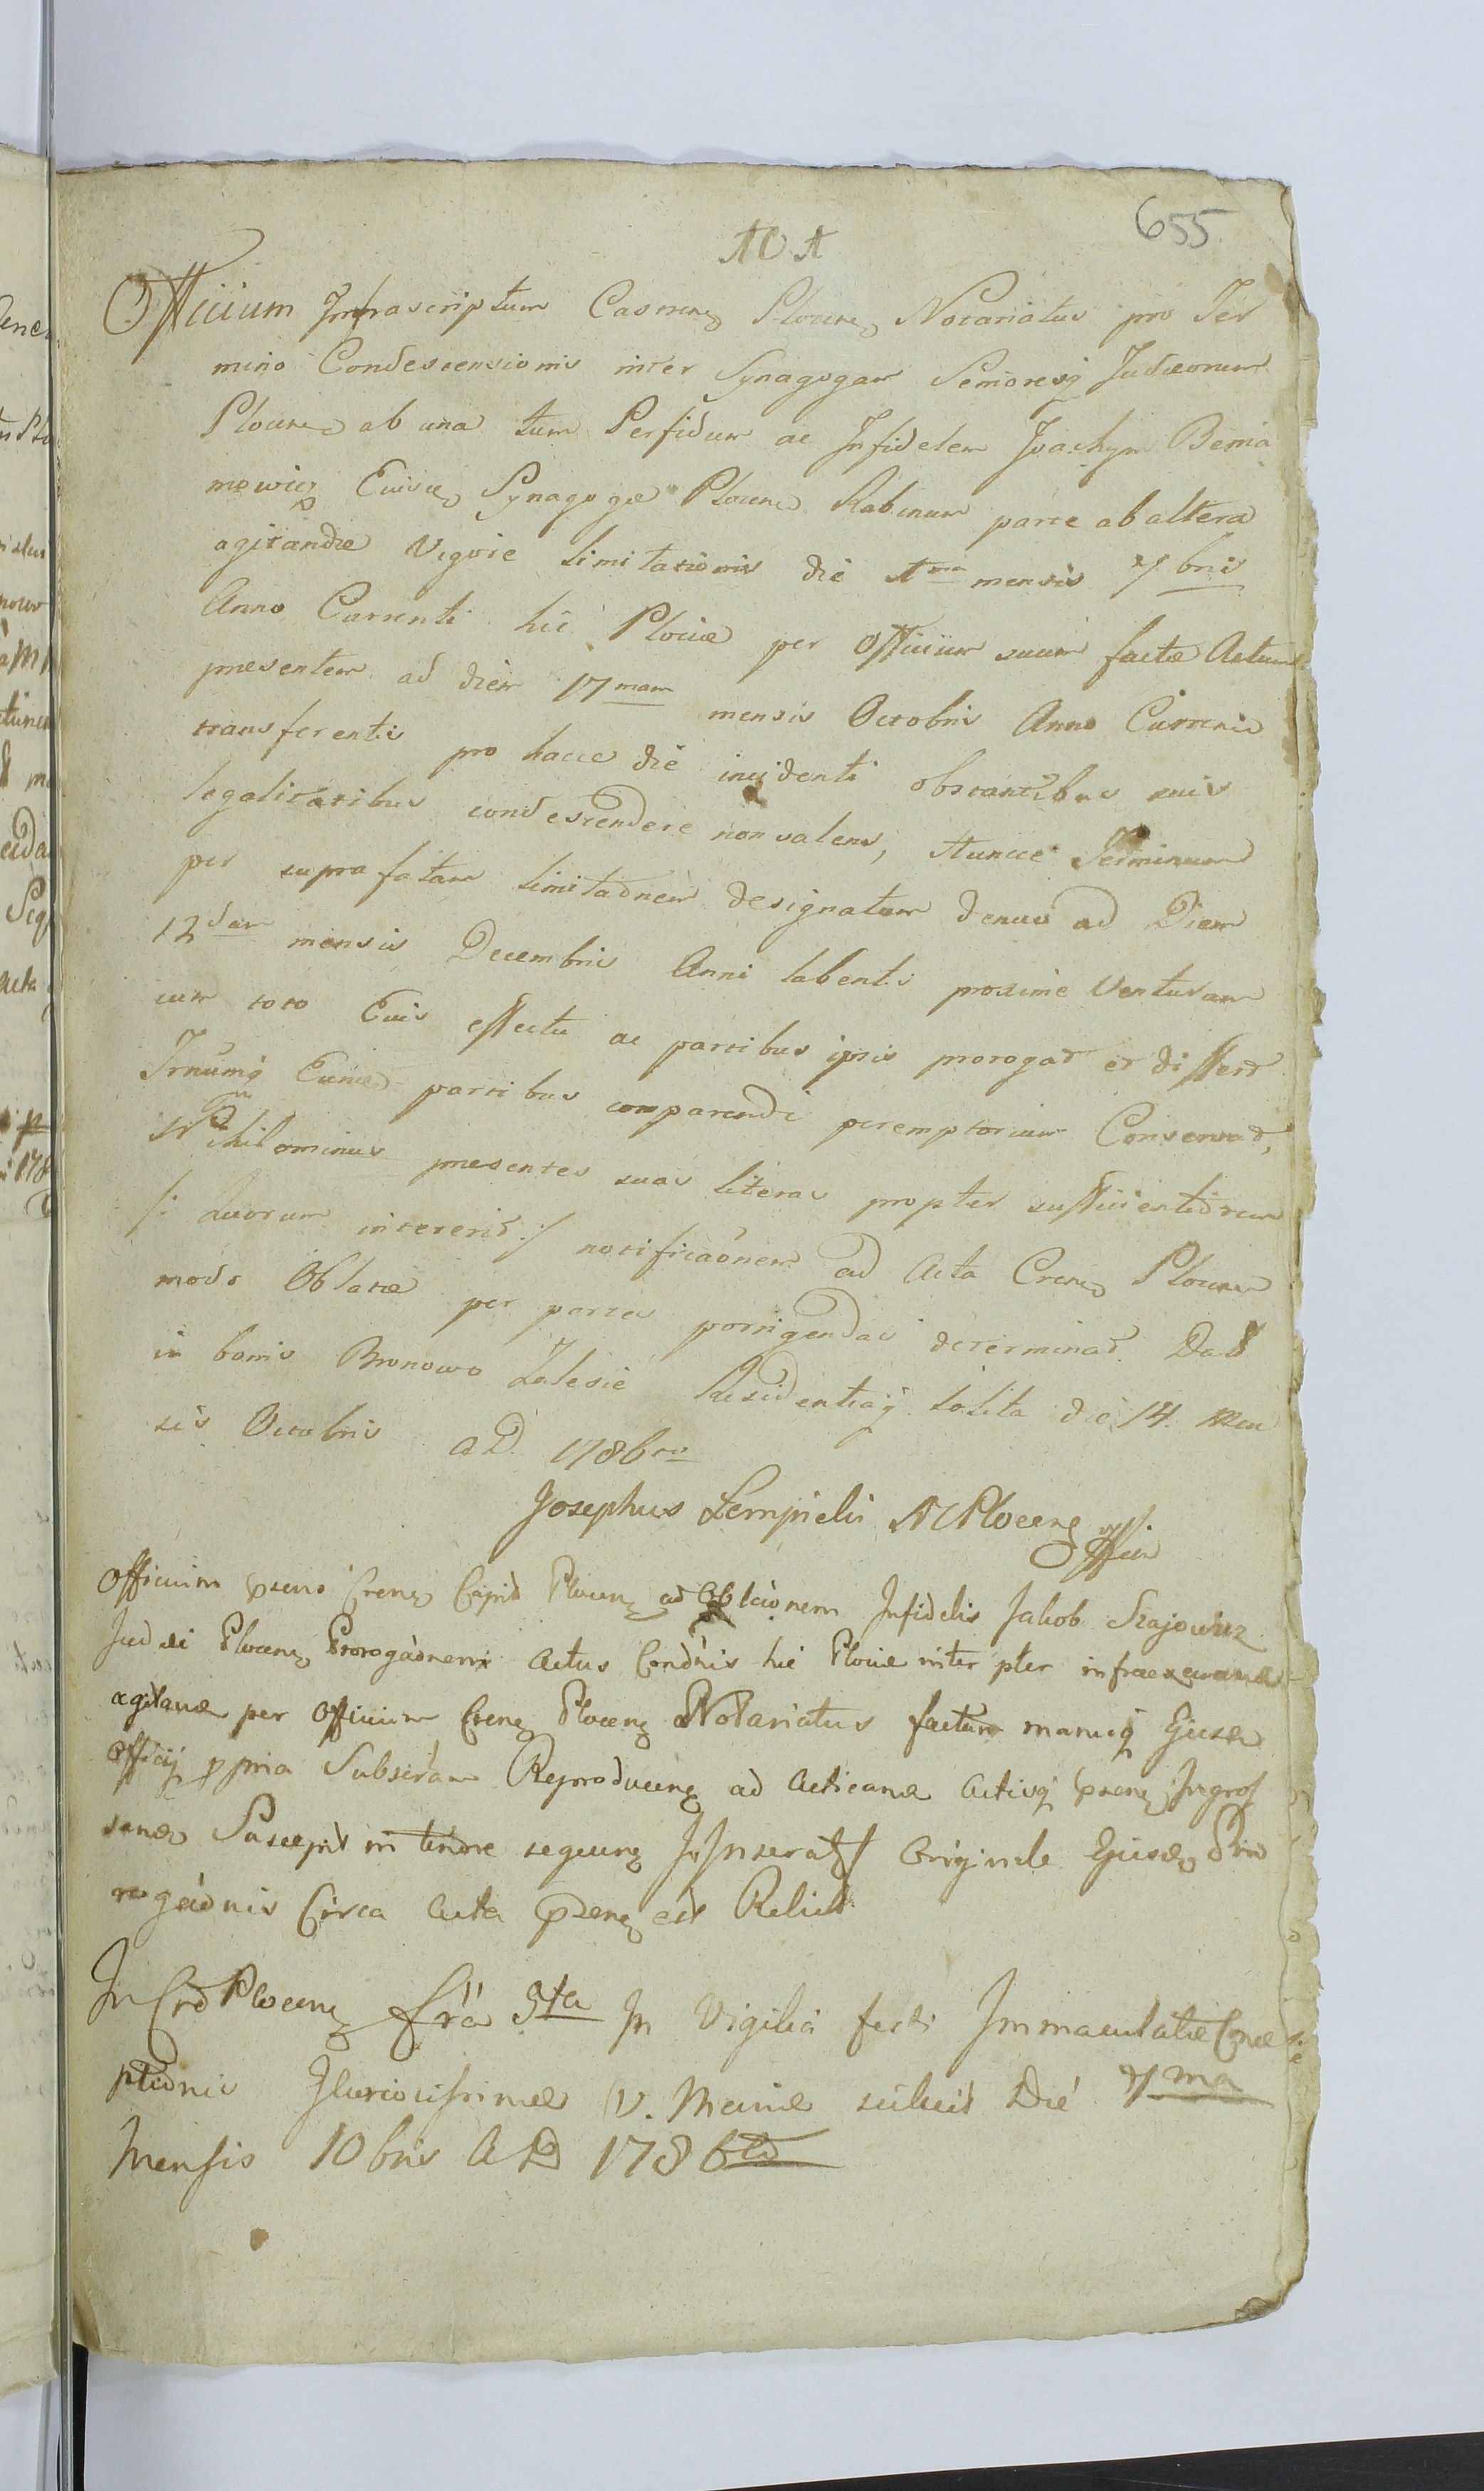 655
A O A
Officium Infrascriptum Castrense Plocense Notariatus pro Ter
mino Condescensionis inter Synagogam Senioresq Judæorum
Plocens ab una tum Perfidum ac Infidelem Joachym Benia
mowicz Eiusd Synagogæ Plocens Rabinum parte ab altera
agitandæ Vigore Limitationis die 1ma mensis 7bris
Anno Currenti hic Plociæ per Officium suum factæ Actum
presentem ad diem 17mam mensis Octobris Anno Currenti
transferentis pro hacce die incidenti obstantibus suis
legalitatibus condescendere non valens, Huncce Terminum
per suprafatam limitaõnem designatum denuo ad Diem
12dam mensis Decembris Anni labentis proxime Venturam
cum toto Eius effectu ac partibus ipsis prorogat et differt
Trnumq Eund partibus comparendi peremptorium Conservat,
Nihilominus presentes suas literas propter sufficientiorem
/: Quorum intererit :/ notificaõnem ad Acta Crens Plocens
modo Oblatæ per partes porrigendas determinat. Dat
in bonis Bronowo Zalesie Residentiaq solita die 14 Men
sis Octobris A D 1786to
Josephus Lempicki N C Plocens
Officium pzens Crens Capit Plocens ad Oblaõnem Infidelis Jakob Szajowicz
Judæi Plocens Prorogaõnem Actus Condnis hic Plociæ inter ptes infra
agitand per Officium Crens Plocens Notariatus factam manuq Ejusd
Officij ppria Subscram Reproducens ad Acticand Actisq pzens Ingros
sand Suscepit in tenore sequens /: Inserat :/ Originale Ejusd Pro
rogaõnis Circa Acta pzens est Relict
In Cro Plocens fria 5ta In Vigilia festi Immaculatæ Conce
ptionis Gloriosissimæ V. Mariæ scilicet Die 7ma
Mensis 10bris A D 1786to